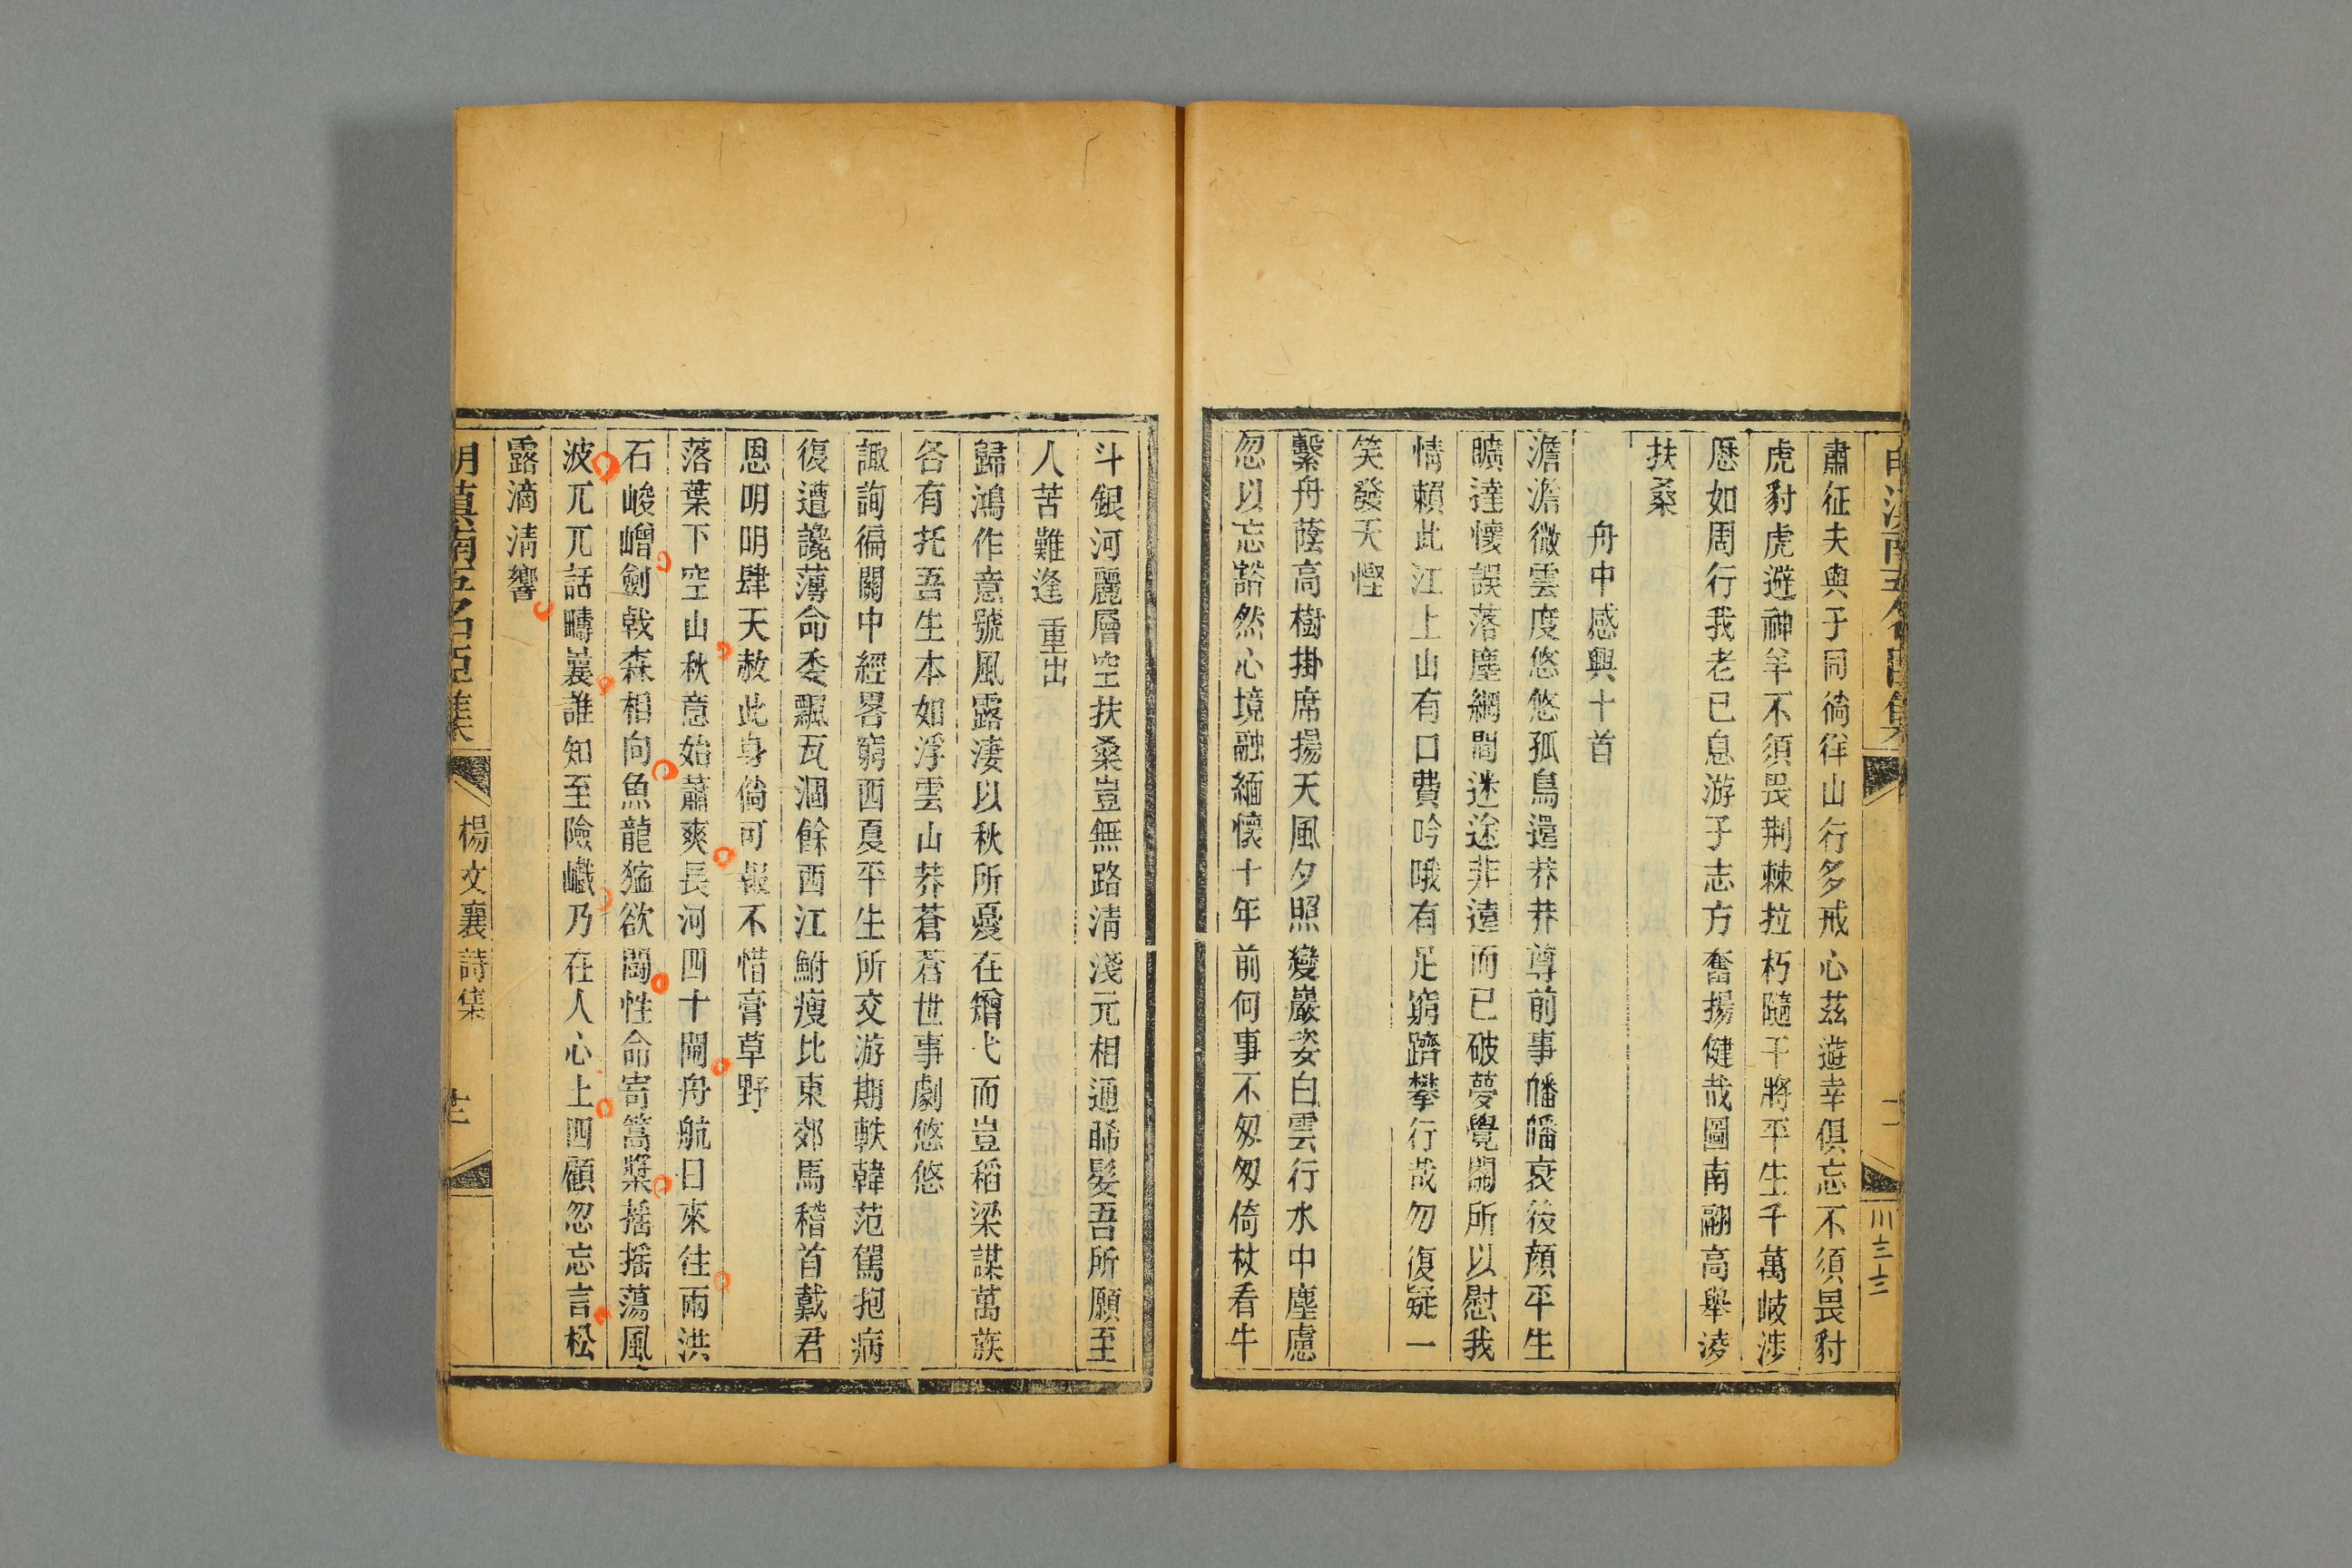 肅征夫與子同徜徉山行多戒心茲遊幸俱忘不須畏豺
虎豺虎避神羊不須畏荆棘拉朽隨干將平生千萬岐涉
歷如周行我老已息游子志方奮揚健哉圖南翮高舉淩
扶桑
舟中感興十首
澹澹微雲度悠悠孤鳥還莽莽尊前事幡幡衰後顏平生
曠達懷誤落塵網間迷途非遠而已破夢覺關所以慰我
情賴此江上山有口費吟哦有足窮躋攀行哉勿復疑一
笑發天慳
繫舟蔭高樹掛席揚天風夕照變巖姿白雲行水中塵慮
忽以忘豁然心境融緬懷十年前何事不匆匆倚杖看牛
斗銀河麗層空扶桑豈無路清淺元相通晞髮吾所願至
人苦難逢 重出
歸鴻作意號風露淒以秋所憂在矰弋而豈稻梁謀萬族
各有托吾生本如浮雲山莽蒼蒼世事劇悠悠
諏詢徧關中經畧窮西夏平生所交游期軼韓范駕抱病
復遭讒薄命委飄瓦涸餘西江鮒瘦比東郊馬稽首戴君
恩明明肆天赦此身倘可報不惜膏草野
落葉下空山秋意始蕭爽長河四十閘舟航日來往兩洪
石峻嶒劍戟森相向魚龍猛欲鬪性命寄篙槳搖搖蕩風
波兀兀話疇曩誰知至險巇乃在人心上四顧忽忘言松
露滴清響
明滇南五名臣集
楊文襄詩集